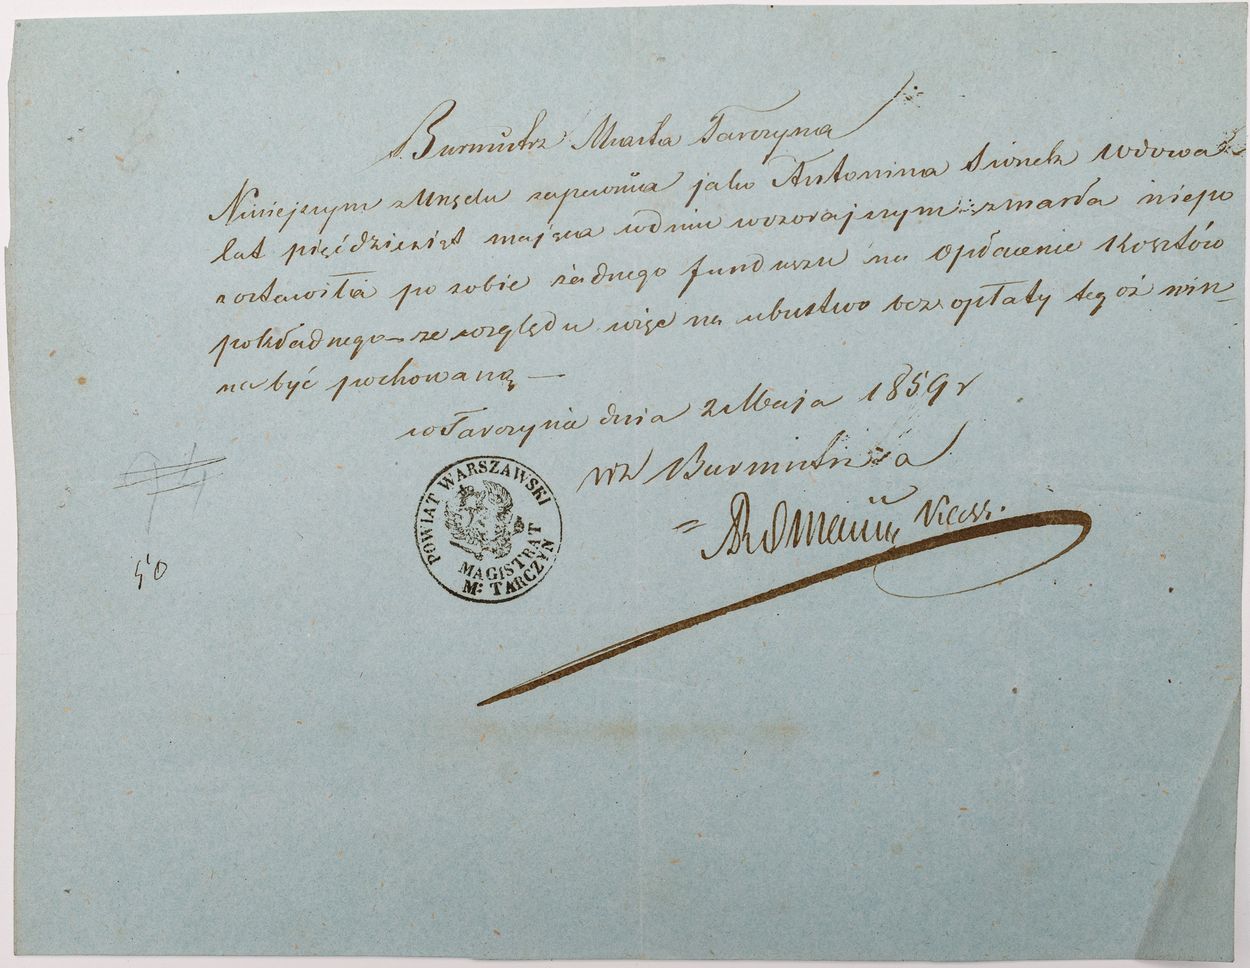 Burmistrz Miasta Tarczyna
Niniejszym z Urzędu zapewnia jako Antonina Sionek Wdowa
lat pięćdziesiąt mająca w dniu wczorajszym zmarła niepo
zostawiła po sobie żadnego funduszu na opłacenie Kosztów
pokładnego – ze względu więc na ubustwo bez opłaty tegoż win-
na być pochowaną —
w Tarczynie dnia 2 Maja 1859 r
wz Burmistrza
POWIAT WARSZAWSKI
MAGISTRAT
M: TARCZYN
50